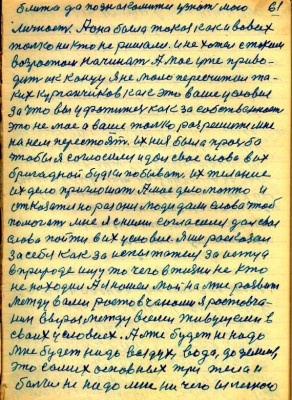 близко да познакомить узнать мою 61
личность. А она была такая как и во всех
только никто не решал и не хотел с таким
возрастом начинать А мое уже приво-
дит их к концу Я не мало пересчитал та-
ких курганчиков как это ваше условия
За что вы ухватитесь как за собственность
это не мое а ваше только разрешите мне
на нем перестоять. Их ния была просьба
чтобы я согласился и дал свое слово в их
бригадной будки побывать их желание
их дело приглашать А мое дело понто и
отказа но раз они люди дали слово чтоб
помогать мне я с ними согласился дал свое
слово пойти в их условие. Я им рассказал
за себя как за испытателя за
в природе ищу то чего в жизни не кто
не находил А я нашел мой на мне развит
между вами
между всеми живущими в
своих условиях. А мне будет не надо
мне будет надо воздух, вода, да земля,
это самих основных три тела и
больше не надо мне ни чего